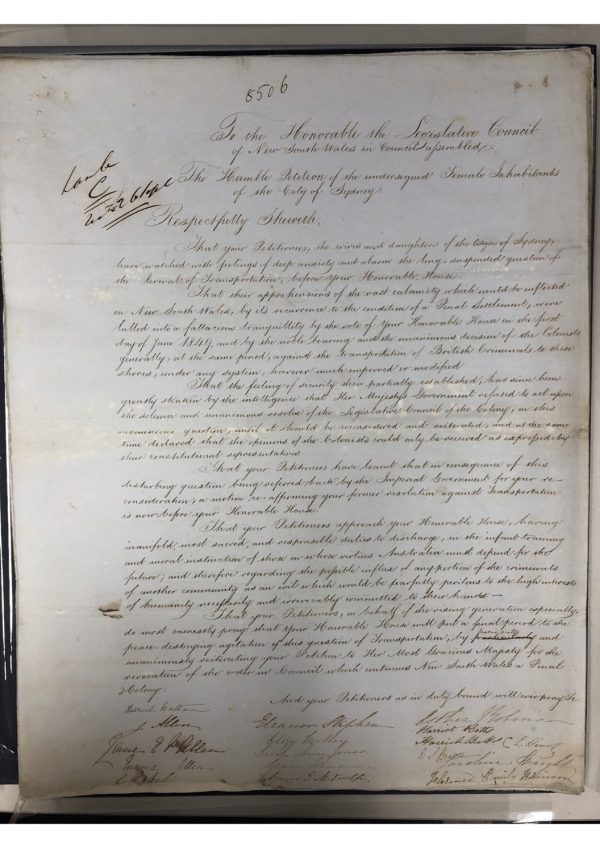 8506
To the Honorable the Legislative Council
of New South Wales in Council assembled:
The Humble Petition of the undersigned Female Inhabitants
of the City of Sydney.
Respectfully Sheweth,
That your Petitioners, the wives and daughters of the Citizens of Sydney,
have watched with feelings of deep anxiety and alarm the long-suspended question of
the Revival of Transportation, before Your Honorable House.
That their apprehensions of the vast calamity which would be inflicted
on New South Wales, by its recurrence to the condition of a Penal Settlement, were
lulled into a fallacious tranquillity by the vote of Your Honorable House on the first
day of June 1849, and by the noble bearing and the unanimous decision of the Colonists
generally, at the same period, against the transportation of British Criminals to these
shores, under any system, however much improved or modified.
That the feeling of security then partially established, has since been
greatly shaken by the intelligence that Her Majesty's Government refused to act upon
the solemn and unanimous resolve of the Legislative Council of the Colony, on this
momentous question, until it should be reconsidered and reiterated, and at the same
time declared that the opinions of the Colonists could only be received as expressed by
their constitutional representatives
That your Petitioners have learnt that in consequence of this
disturbing question being referred back by the Imperial Government for your re-
consideration, a motion re-affirming your former resolution against Transportation
is now before your Honorable House.
That your Petitioners approach your Honorable House, having
manifold, most sacred, and responsible duties to discharge, in the infant training
and moral instruction of those on whose virtues Australia must depend for the
future; and therefore regarding the possible influx of any portion of the criminals
of another community as an evil which would be fearfully perilous to the high interests
of humanity necessarily and irrevocably committed to their hands.—
That your Petitioners, on behalf of the rising generation especially,
do most earnestly pray that Your Honorable House will put a final period to the
peace-destroying agitation of this question of Transportation, by and
unanimously reiterating your Petition to Her Most Gracious Majesty for the
revocation of the order in Council which continues New South Wales a Penal
Colony:
And your Petitioners as in duty bound will ever pray &c
J Allen Eleanor Stephen
Harriet
Emma Allen Caroline Wright
Emily